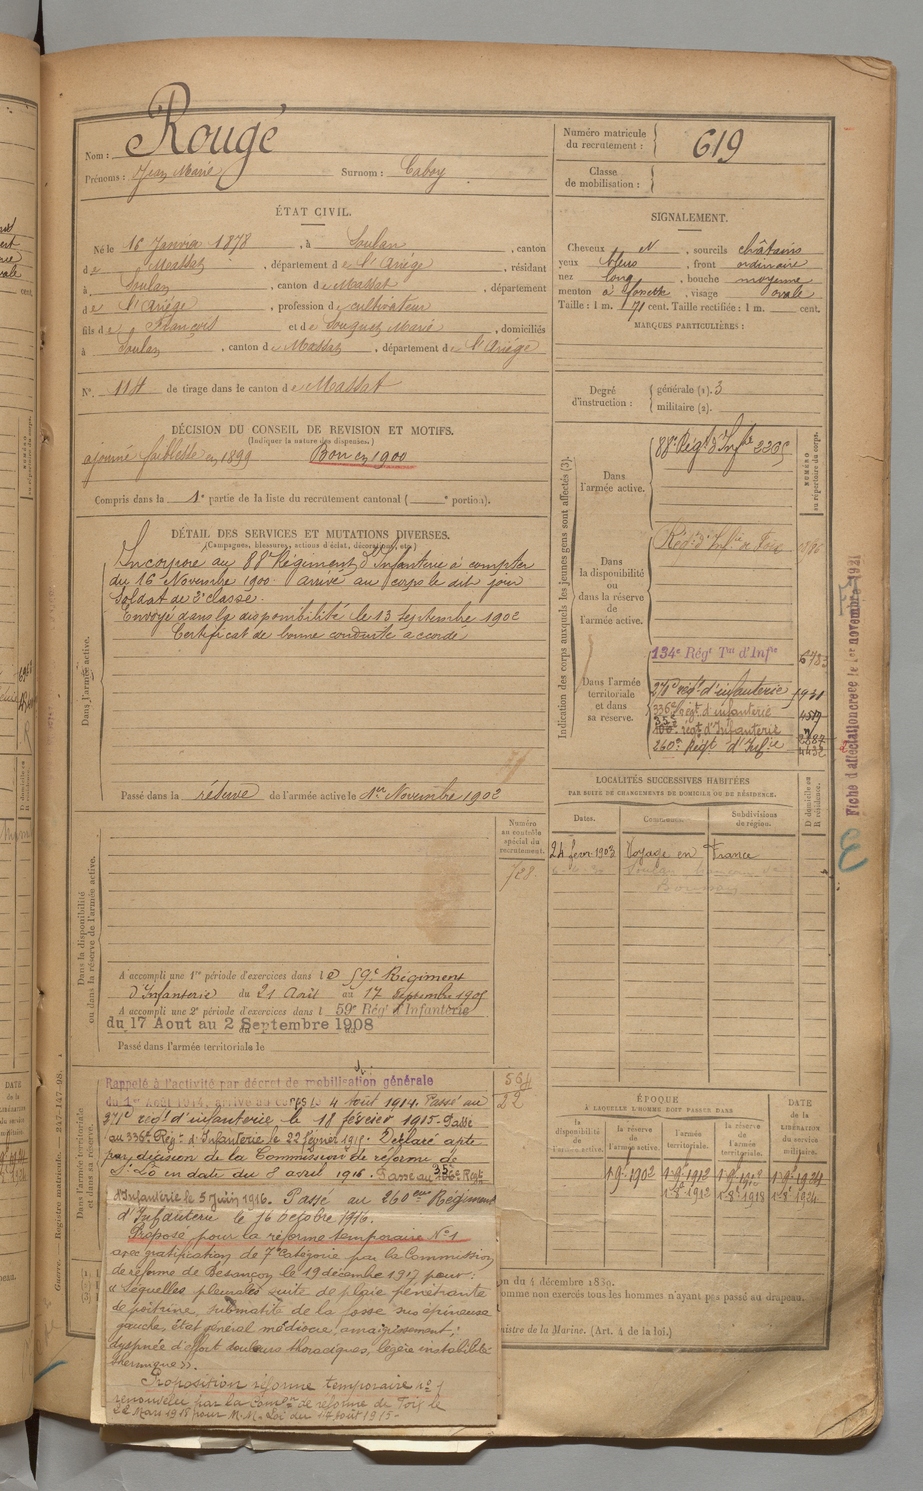 Nom : Rougé
Prénoms : Jean Marie Surnom : Caboy
ÉTAT CIVIL.
Né le 16 Janvier 1878, à Soulan, canton
de Massat, département de l'Ariège, résidant
à Soulan, canton de Massat, département
de l'Ariège, profession de cultivateur
fils de François et de Souquet Marie, domiciliés
à Soulan, canton de Massat, département de l'Ariège
N° 114 de tirage dans le canton de Massat
DÉCISION DU CONSEIL DE REVISION ET MOTIFS.
(Indiquer la nature des dispenses.)
ajourné faiblesse en 1899 Bon en 1900
Compris dans la 1e partie de la liste du recrutement cantonal ( e portion).
DÉTAIL DES SERVICES ET MUTATIONS DIVERSES.
(Campagnes, blessures, actions d'éclat, décorations, etc.)
Dans l'armée active.
Incorporé au 88e Régiment d'Infanterie à compter
du 16 Novembre 1900. arrivé au corps le dit jour
Soldat de 2e classe.
Envoyé dans la disponibilité le 13 Septembre 1902
Certificat de bonne conduite accordé
Passé dans la réserve de l'armée active le 1er Novembre 1902
Numéro
au contrôle
spécial du
recrutement.
Dans la disponibilité
ou dans la réserve de l'armée active.
A accompli une 1re période d'exercices dans le 59e Régiment
d'Infanterie du 21 Août au 17 Septembre 1905
A accompli une 2e période d'exercices dans l 59e Rég d'Infanterie
du 17 Aout au 2 Septembre 1908
Passé dans l'armée territoriale le
Dans l'armée territoriale
et dans sa réserve.
Rappelé à l'activité par décret de mobilisation générale
du 1er Août 1914, arrivé au corps le 4 août 1914. Passé au
271e régt d'infanterie le 18 février 1915. Passé
au 336e Régt d'Infanterie le 22 février 1915. Déclaré apte
par décision de la Commission de réforme de
St Lô en date du 8 avril 1916. Passé au 35e Régt
d'Infanterie le 5 juin 1916. Passé au 260eme Régiment
d'Infanterie le 16 octobre 1916.
Proposé pour la réforme temporaire N° 1
avec gratification de 7e catégorie par la Commission
de réforme de Besançon le 19 décembre 1917 pour :
« Séquelles pleurales suite de plaie pénétrante
de poitrine, submatité de la fosse sus épineuse
gauche, état général médiocre, amaigrissement,
dyspnée d'effort douleurs thoraciques, légère instabilité
thermique ».
Proposition réforme temporaire n° 1
renouvelée par la comon de réforme de Foix le
22 Mars 1918 pour M. M. Loi du 17 août 1915-
Numéro matricule
du recrutement : 619
Classe
de mobilisation :
SIGNALEMENT.
Cheveux N, sourcils châtains
yeux bleus, front ordinaire
nez long, bouche moyenne
menton à fossette, visage ovale
Taille : 1 m. 71 cent. Taille rectifiée : 1 m. cent.
MARQUES PARTICULIÈRES :
Degré
d'instruction :
générale (1). 3
militaire (2).
Indication des corps auxquels les jeunes gens sont affectés (3).
NUMÉRO
au répertoire du corps.
Dans
l'armée active.
88e Régt d'Infie 2295
Dans
la disponibilité
ou
dans la réserve
de
l'armée active.
Régt d'Infie de Foix
Dans l'armée
territoriale
et dans
sa réserve.
134e Régt Tal d'Infie 6783
271e régt d'infanterie
336e Régt d'infanterie 4519
35e régt d'Infanterie
260e Régt d'Infie 4432
Fiche d'affectation créée le 1er novembre 1921
LOCALITÉS SUCCESSIVES HABITÉES
PAR SUITE DE CHANGEMENTS DE DOMICILE OU DE RÉSIDENCE.
D domicile ou
R résidence.
Dates. Communes. Subdivisions
de région.
24 févr. 1903 Voyage en France
ÉPOQUE
À LAQUELLE L'HOMME DOIT PASSER DANS
la
disponibilité
de
l'armée active.
la réserve
de
l'armée active.
l'armée
territoriale.
la réserve
de
l'armée
territoriale.
DATE
de la
LIBÉRATION
du service
militaire.
1-9bre 1902 1-9bre 1912 1-9bre 1918 1-9bre 1924
1-8bre 1912 1-8bre 1918 1-8bre 1924
on du 4 décembre 1889.
omme non exercés tous les hommes n'ayant pas passé au drapeau.
nistre de la Marine. (Art. 4 de la loi.)
Guerre. Registre matricule. — 247-147-98.